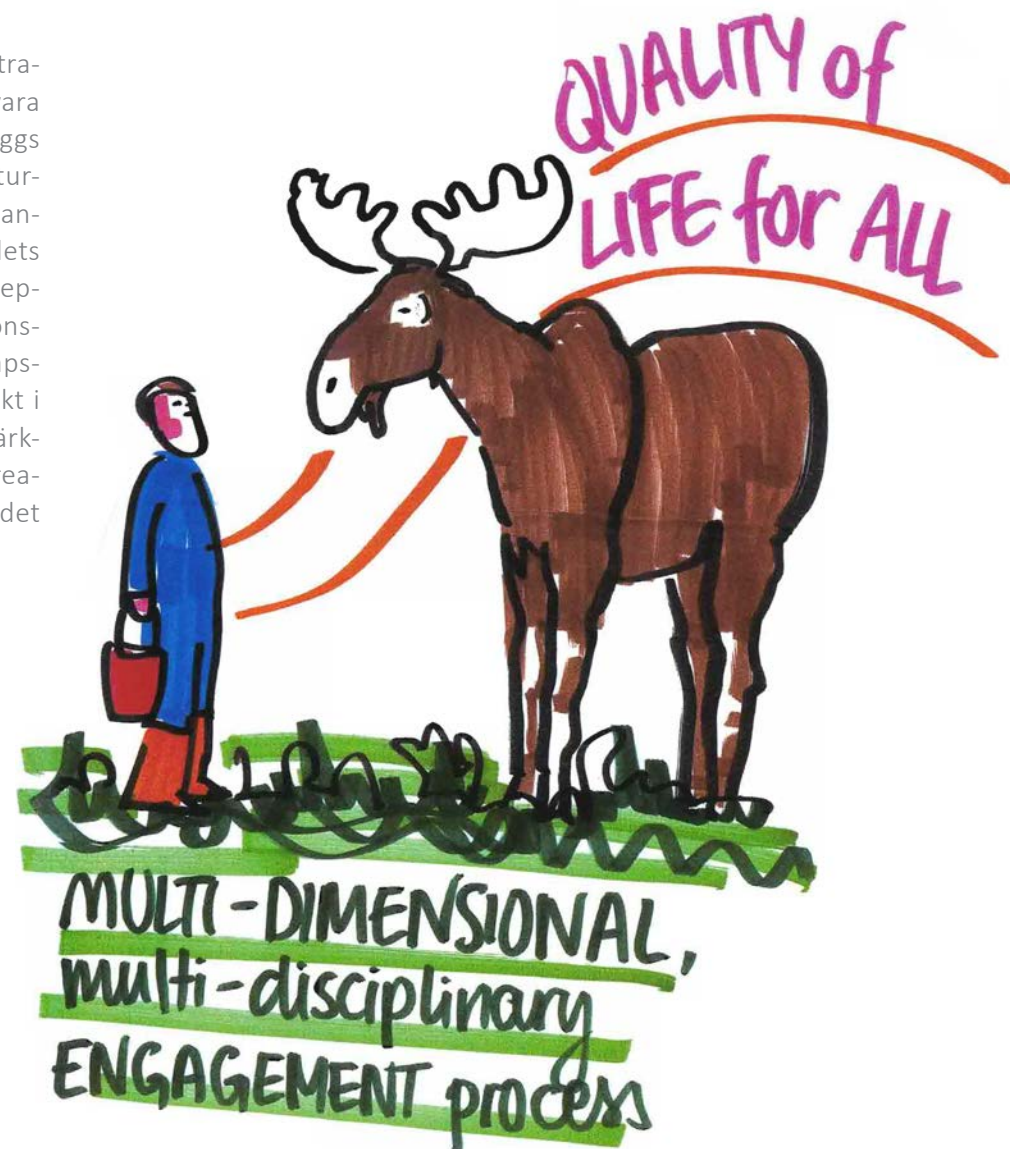 tra-
ara
ggs
tur-
an-
lets
ep-
ons-
aps-
kt i
ärk-
rea-
det
QUALITY of
LIFE for ALL
MULTI-DIMENSIONAL,
multi-disciplinary
ENGAGEMENT process